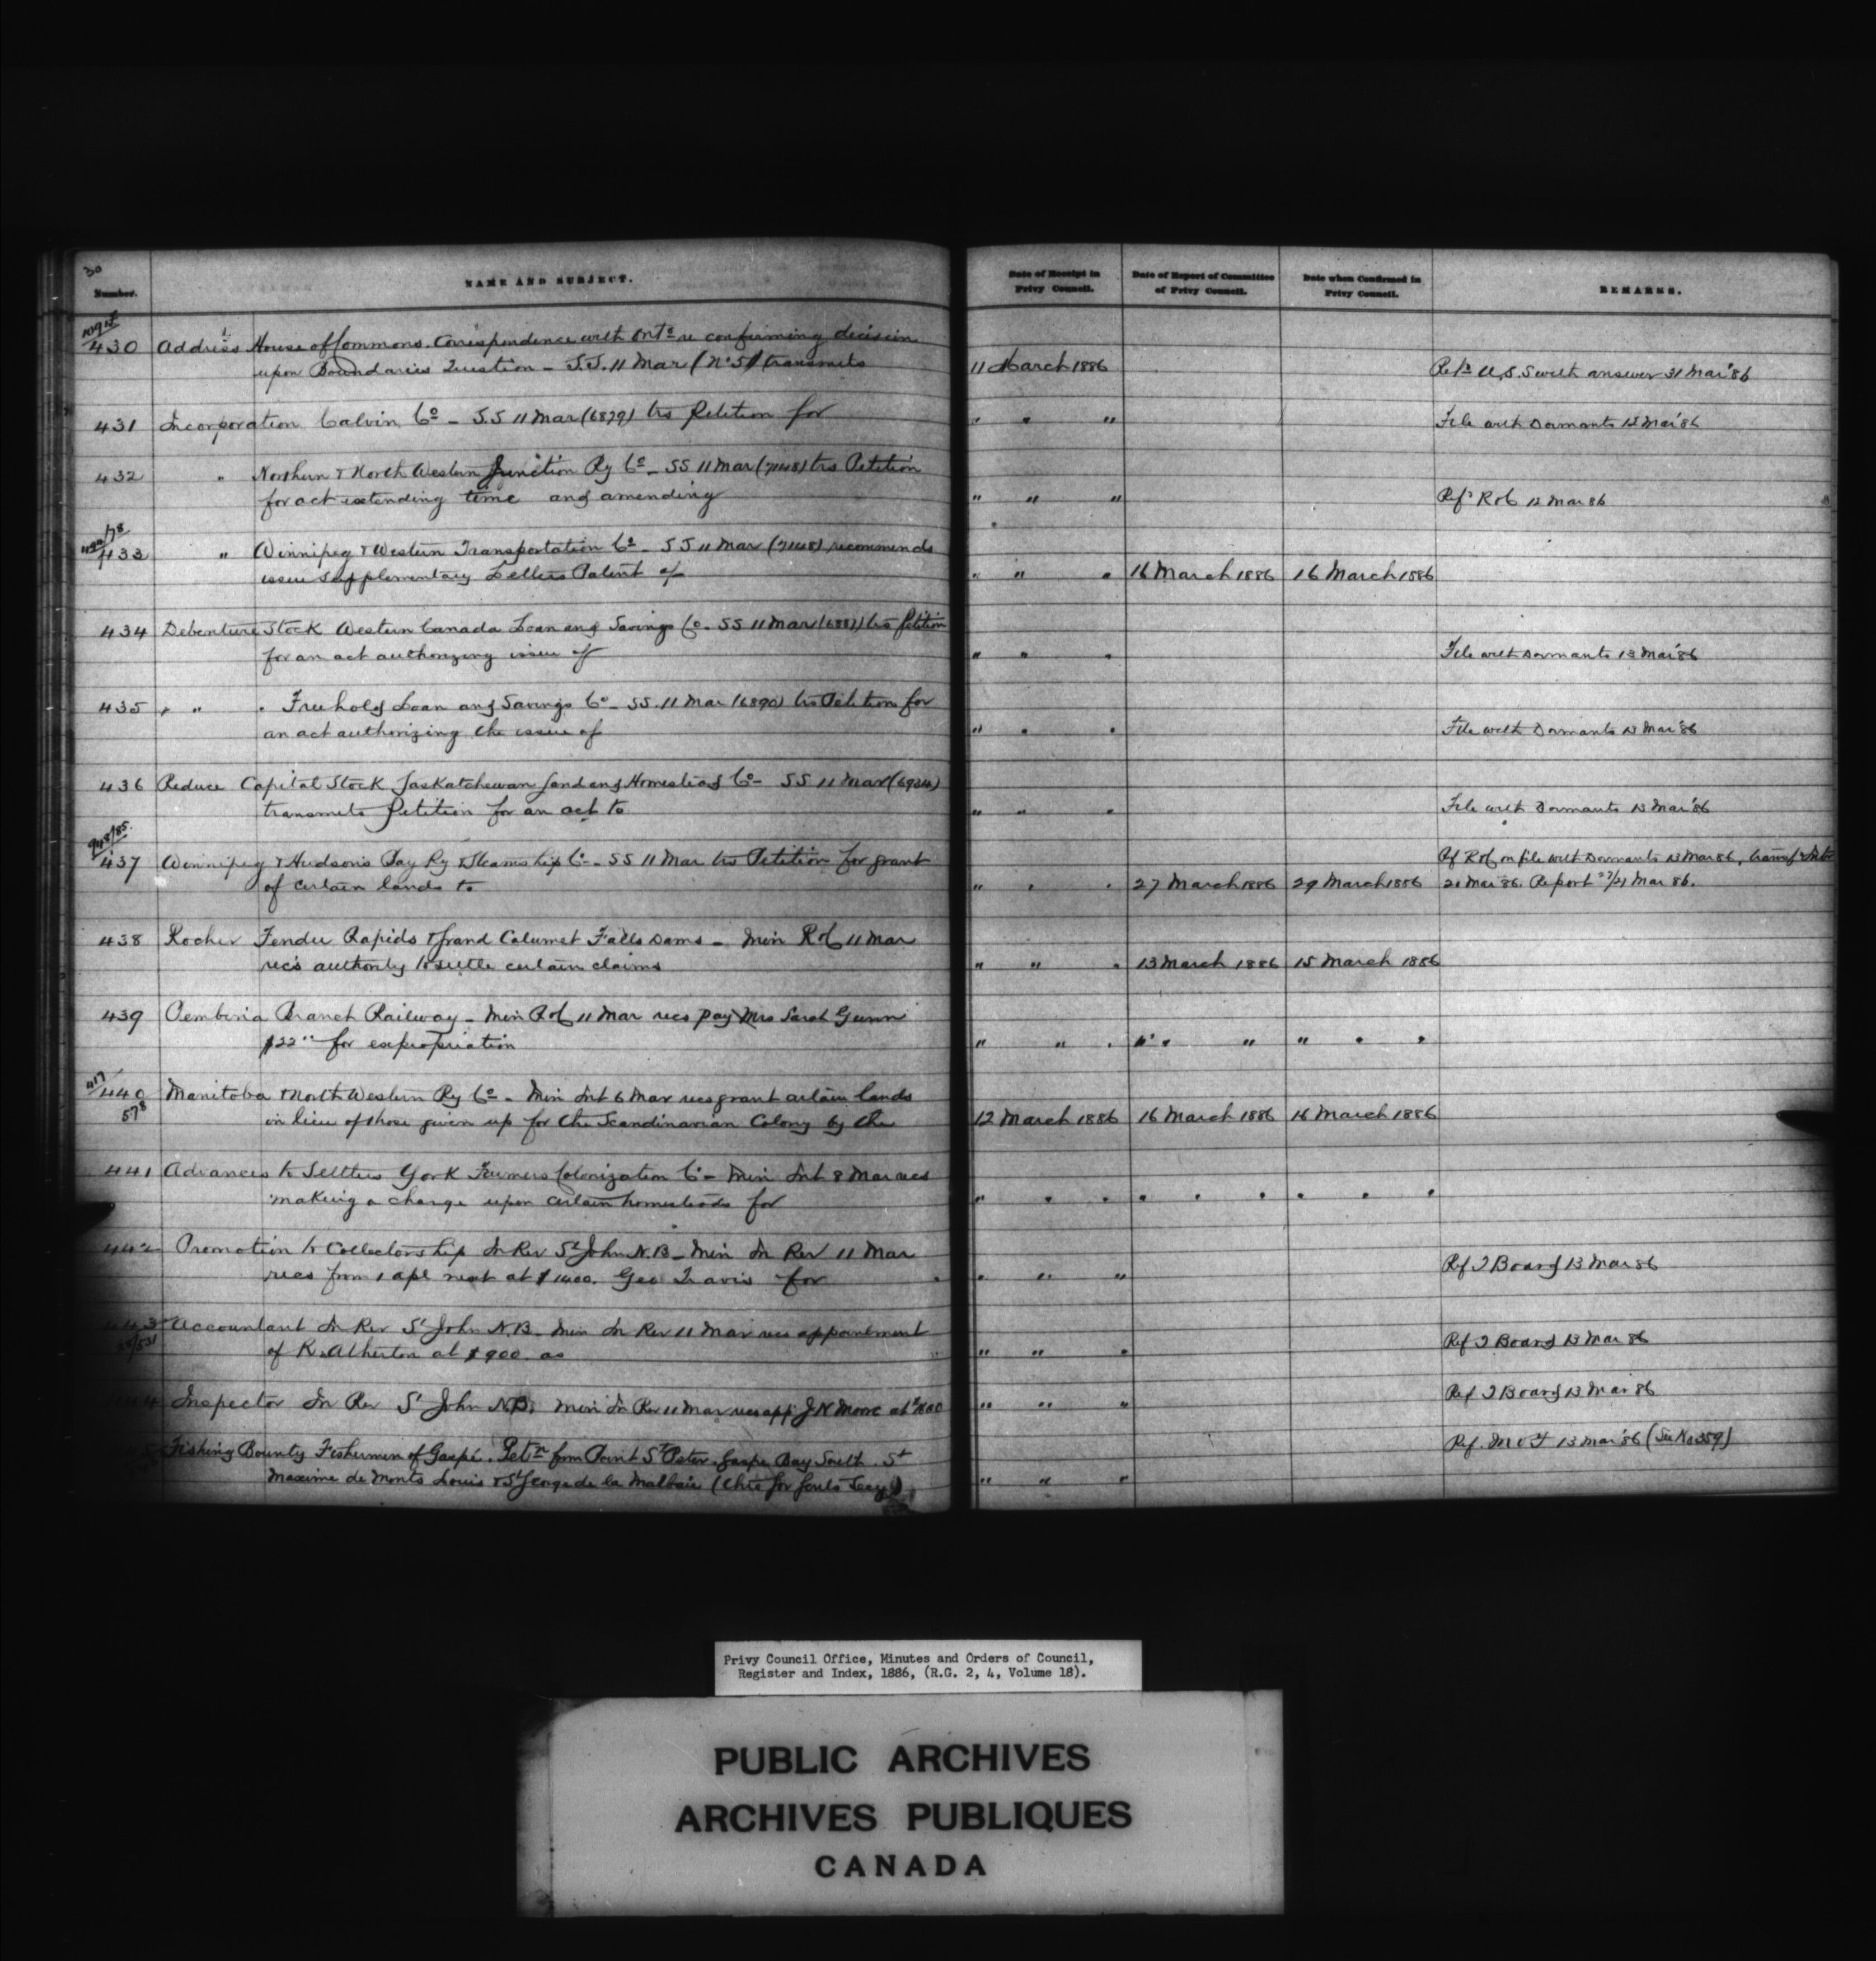 30
Number.
NAME AND SUBJECT.
Date of Receipt in Privy Council.
Date of Report of Committee of Privy Council.
Date when Confirmed in Privy Council.
REMARKS.
430 Address House of Commons. Correspondence with Onto re confirming decision
upon Boundaries Question - S.S. 11 Mar (No 51) transmits 11 March 1886 U.S.S with answer 31 Mar '86
431 Incorporation Calvin Co - S.S 11 Mar (6879) trs Petition for " " " File with Dormants 13 Mar '86
432 " Northern & North Western Junction Ry Co - SS 11 Mar (7148) trs Petition
for act extending time and amending " " " Refd R&C 12 Mar 86
433 " Winnipeg & Western Transportation Co - SS 11 Mar (7148) recommends
issue supplementary Letters Patent of " " " 16 March 1886 16 March 1886
434 Debenture Stock Western Canada Loan and Savings Co - SS 11 Mar (6887) trs Petition
for an act authorizing issue of " " " File with Dormants 13 Mar '86
435 " " " Freehold Loan and Savings Co - SS. 11 Mar (6890) trs Petition for
an act authorizing the issue of " " " File with Dormants 13 Mar '86
436 Reduce Capital Stock Saskatchewan Land and Homestead Co - SS 11 Mar (6924)
transmits Petition for an act to " " " File with Dormants 13 Mar '86
948/85
437 Winnipeg & Hudson's Bay Ry & Steamship Co - SS 11 Mar trs Petition for grant Ref R&C on file with Dormants 13 Mar 86, transf Intr
of certain lands to " " " 27 March 1886 29 March 1886 Mar 86. Report Mar 86.
438 Rocher Fendu Rapids & Grand Calumet Falls Dams - Min R&C 11 Mar
recs authority to settle certain claims " " " 13 March 1886 15 March 1886
439 Pembina Branch Railway - Min R&C 11 Mar recs pay Mrs Sarah Gunn
$22 for expropriation " " " " " " " " "
417
440 Manitoba & North Western Ry Co - Min Int 6 Mar recs grant certain lands
578
in lieu of those given up for the Scandinavian Colony by the 12 March 1886 16 March 1886 16 March 1886
441 Advances to Settlers York Farmers Colonization Co - Min Int 8 Mar recs
making a charge upon certain homesteads for " " " " " " " " "
442 Promotion to Collectorship In Rev St John N.B - Min In Rev 11 Mar Ref T Board 13 Mar 86
recs from 1 Apl next at $1400. Geo Travis for " " "
443 Accountant In Rev St John N.B. Min In Rev 11 Mar recs appointment Ref T Board 13 Mar 86
of R. Atherton at $900. as " " "
444 Inspector In Rev St John N.B. Min In Rev 11 Mar recs app J N Moore at " " " Ref T Board 13 Mar 86
Fishing Bounty Fishermen of Gaspé. Petn from Point St Peter. Gaspe Bay South. St Ref. M & F 13 Mar '86 (See No 359)
Maxime de Monts Louis & St George de la Malbaie " " "
Privy Council Office, Minutes and Orders of Council,
Register and Index, 1886, (R.G. 2, 4, Volume 18).
PUBLIC ARCHIVES
ARCHIVES PUBLIQUES
CANADA